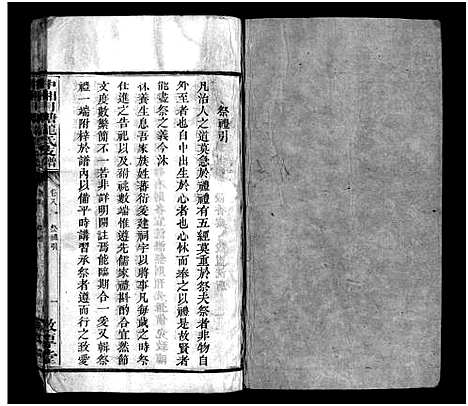 祭禮引
凡治人之道莫急於禮禮有五經莫重於祭夫祭者非物自
外至者也自中出生於心者也心怵而奉之以禮是故賢者
能盡祭之義今沐
休養生息吾家族姓蕃衍爰建祠宇以將事凡每歲之時祭
仕進之告祀以及祔祧數端惟遵先儒家禮斟酌合宜然節
文度數繁簡不一若非詳明開註焉能臨期合一爰又輯祭
禮一編附梓於譜內以備平時講習承祭者遵而行之致愛
氏支譜
卷八
祭禮引
一
敦厚堂